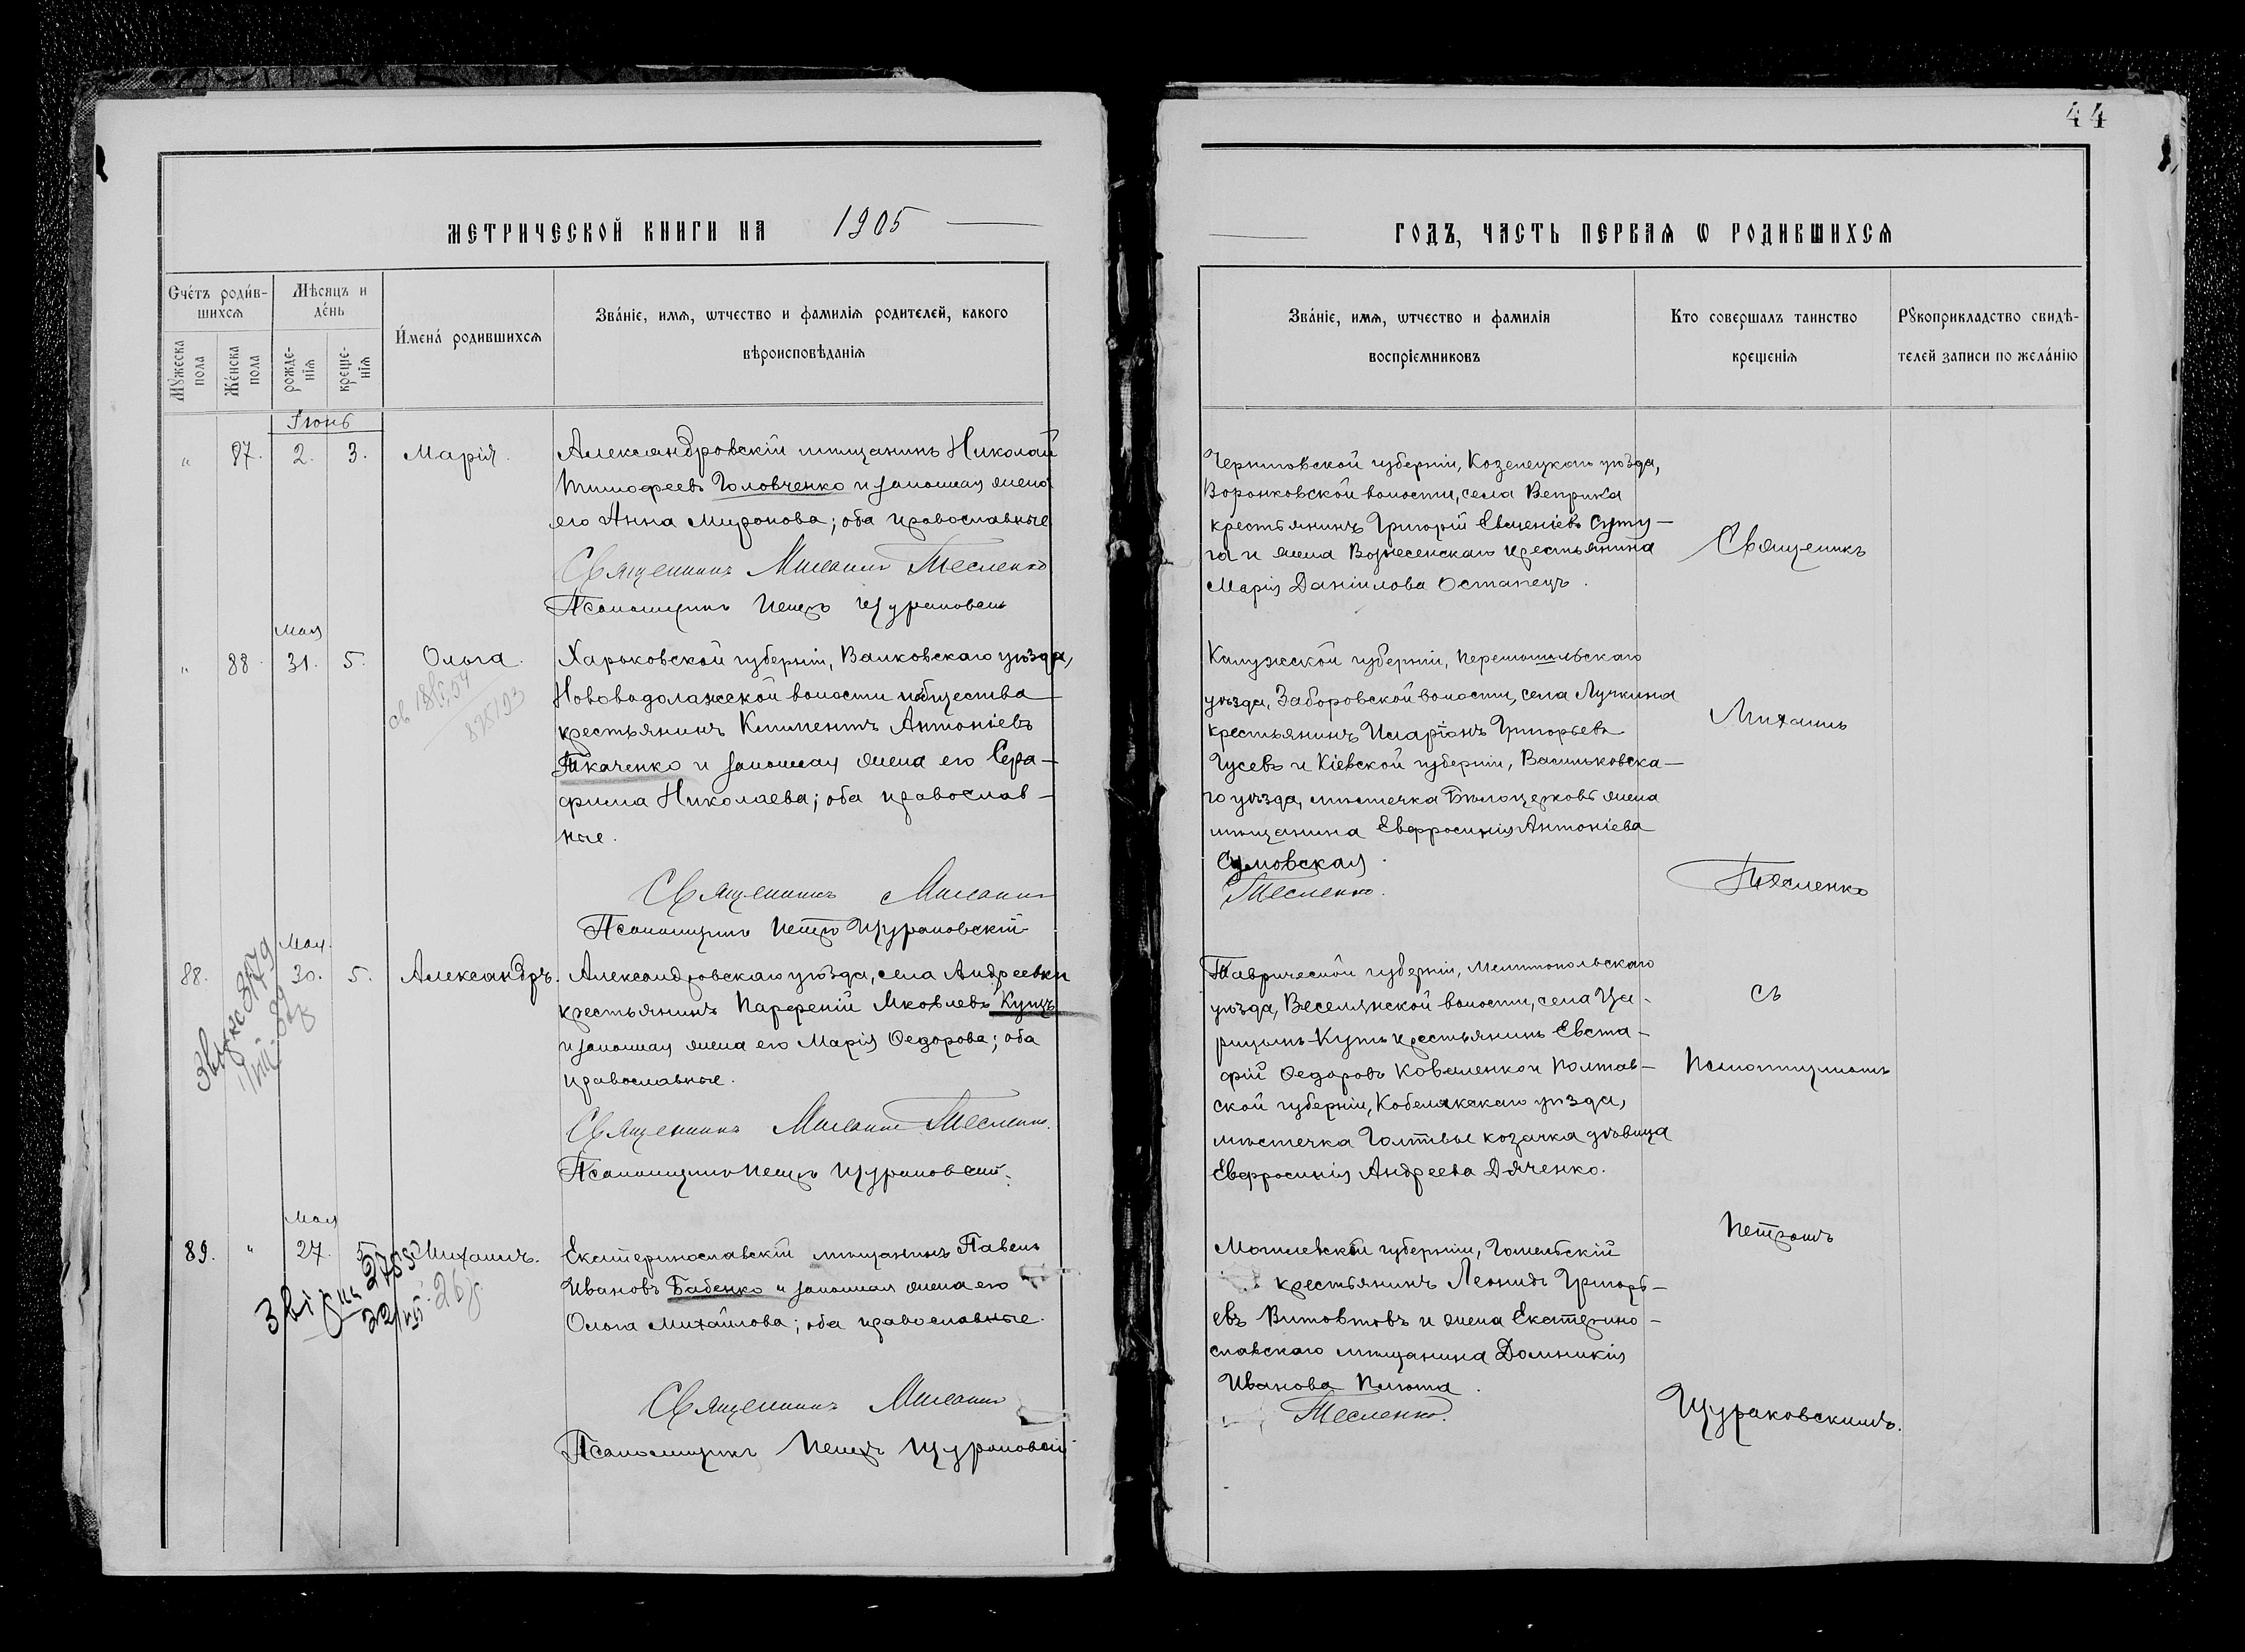 44
МЕТРИЧЕСКОЙ КНИГИ НА 1905
ГОДЪ, ЧАСТЬ ПЕРВАЯ Ѡ РОДИВШИХСЯ
Счетъ родив-
шихся
Мужеска
пола
Женска
пола
Мѣсяцъ и
день
рожде-
нія
креще-
нія
Имена родившихся
Званіе, имя, ѡтчество и фамилія родителей, какого
вѣроисповѣданія
Званіе, имя, ѡтчество и фамилія
воспріемниковъ
Кто совершалъ таинство
крещенія
Рукоприкладство свидѣ-
телей записи по желанію
Іюнь
" 87. 2. 3. Марія.
Александровскій мѣщанинъ Николай
Тимофеевъ Головченко и законная жена
его Анна Миронова; оба православные
Священникъ Михаилъ Тесленко
Псаломщикъ Петръ Щураковскій
Черниговской губерніи, Козелецкаго уѣзда,
Воронковской волости, села Веприка
крестьянинъ Григорій Евгеніевъ Суту-
га и жена Вознесенскаго крестьянина
Марія Даніилова Остапецъ.
Мая
" 88. 31. 5. Ольга.
Харьковской губерніи, Валковскаго уѣзда,
Нововодолажской волости и общества
крестьянинъ Климентъ Антоніевъ
Ткаченко и законная жена его Сера-
фима Николаева; оба православ-
ные.
Священникъ Михаилъ
Псаломщикъ Петръ Щураковскій
Калужской губерніи, Перемышльскаго
уѣзда, Заборовской волости, села Лучкина
крестьянинъ Иларіонъ Григорьевъ
Гусевъ и Кіевской губерніи, Васильковска-
го уѣзда, мѣстечка Бѣлоцерковь жена
мѣщанина Евфросинія Антоніева
Сумовская.
Тесленко.
Мая.
88. 30. 5. Александръ.
Александровскаго уѣзда, села Андреевки
крестьянинъ Парфеній Яковлевъ Куцъ
и законная жена его Марія Ѳедорова; оба
православные.
Священникъ Михаилъ Тесленко.
Псаломщикъ Петръ Щураковскій.
Таврической губерніи, Мелитопольскаго
уѣзда, Веселянской волости, села Ца-
рицынъ-Кутъ крестьянинъ Евста-
фій Ѳедоровъ Коваленко и Полтав-
ской губерніи, Кобелякскаго уѣзда,
мѣстечка Голтвы козачка дѣвица
Евфросинія Андреева Дяченко.
Мая
89. " 27. 5. Михаилъ.
Екатеринославскій мѣщанинъ Павелъ
Ивановъ Бабенко и законная жена его
Ольга Михайлова; оба православные.
Священникъ Михаилъ
Псаломщикъ Петръ Щураковскій
Могилевской губерніи, Гомельскій
крестьянинъ Леонидъ Григорь-
евъ Витовтовъ и жена Екатерино-
славскаго мѣщанина Домникія
Иванова Плюта.
Тесленко.
Священникъ
Михаилъ
Тесленко
съ
Псаломщикомъ
Петромъ
Щураковскимъ.